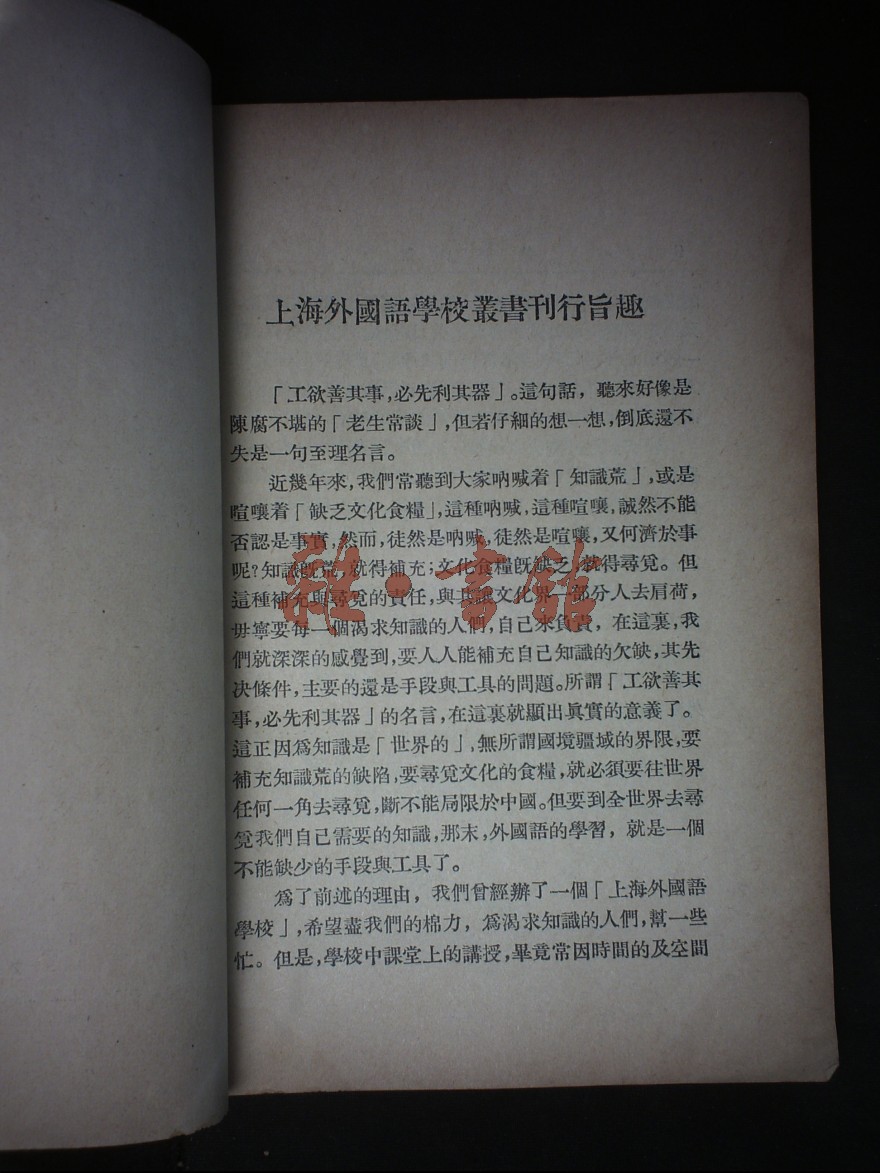 上海外國語學校叢書刊行旨趣
「工欲善其事,必先利其器」。這句話,聽來好像是
陳腐不堪的「老生常談」,但若仔細的想一想,倒底還不
失是一句至理名言。
近幾年來,我們常聽到大家吶喊着「知識荒」,或是
喧嚷着「缺乏文化食糧」,這種吶喊,這種喧嚷,誠然不能
否認是事實,然而,徒然是吶喊,徒然是喧嚷,又何濟於事
呢?知識旣荒,就得補充;文化食糧旣缺乏,就得尋覓。但
這種補充與尋覓的責任,與其讓文化界一部分人去肩荷,
毋寧要每一個渴求知識的人們,自己來負責,在這裏,我
們就深深的感覺到,要人人能補充自己知識的欠缺,其先
决條件,主要的還是手段與工具的問題。所謂「工欲善其
事,必先利其器」的名言,在這裏就顯出眞實的意義了。
這正因爲知識是「世界的」,無所謂國境疆域的界限,要
補充知識荒的缺陷,要尋覓文化的食糧,就必須要往世界
任何一角去尋覓,斷不能局限於中國。但要到全世界去尋
覓我們自己需要的知識,那末,外國語的學習,就是一個
不能缺少的手段與工具了。
爲了前述的理由,我們曾經辦了一個「上海外國語
學校」,希望盡我們的棉力,爲渴求知識的人們,幫一些
忙。但是,學校中課堂上的講授,畢竟常因時間的及空間
雜·書館